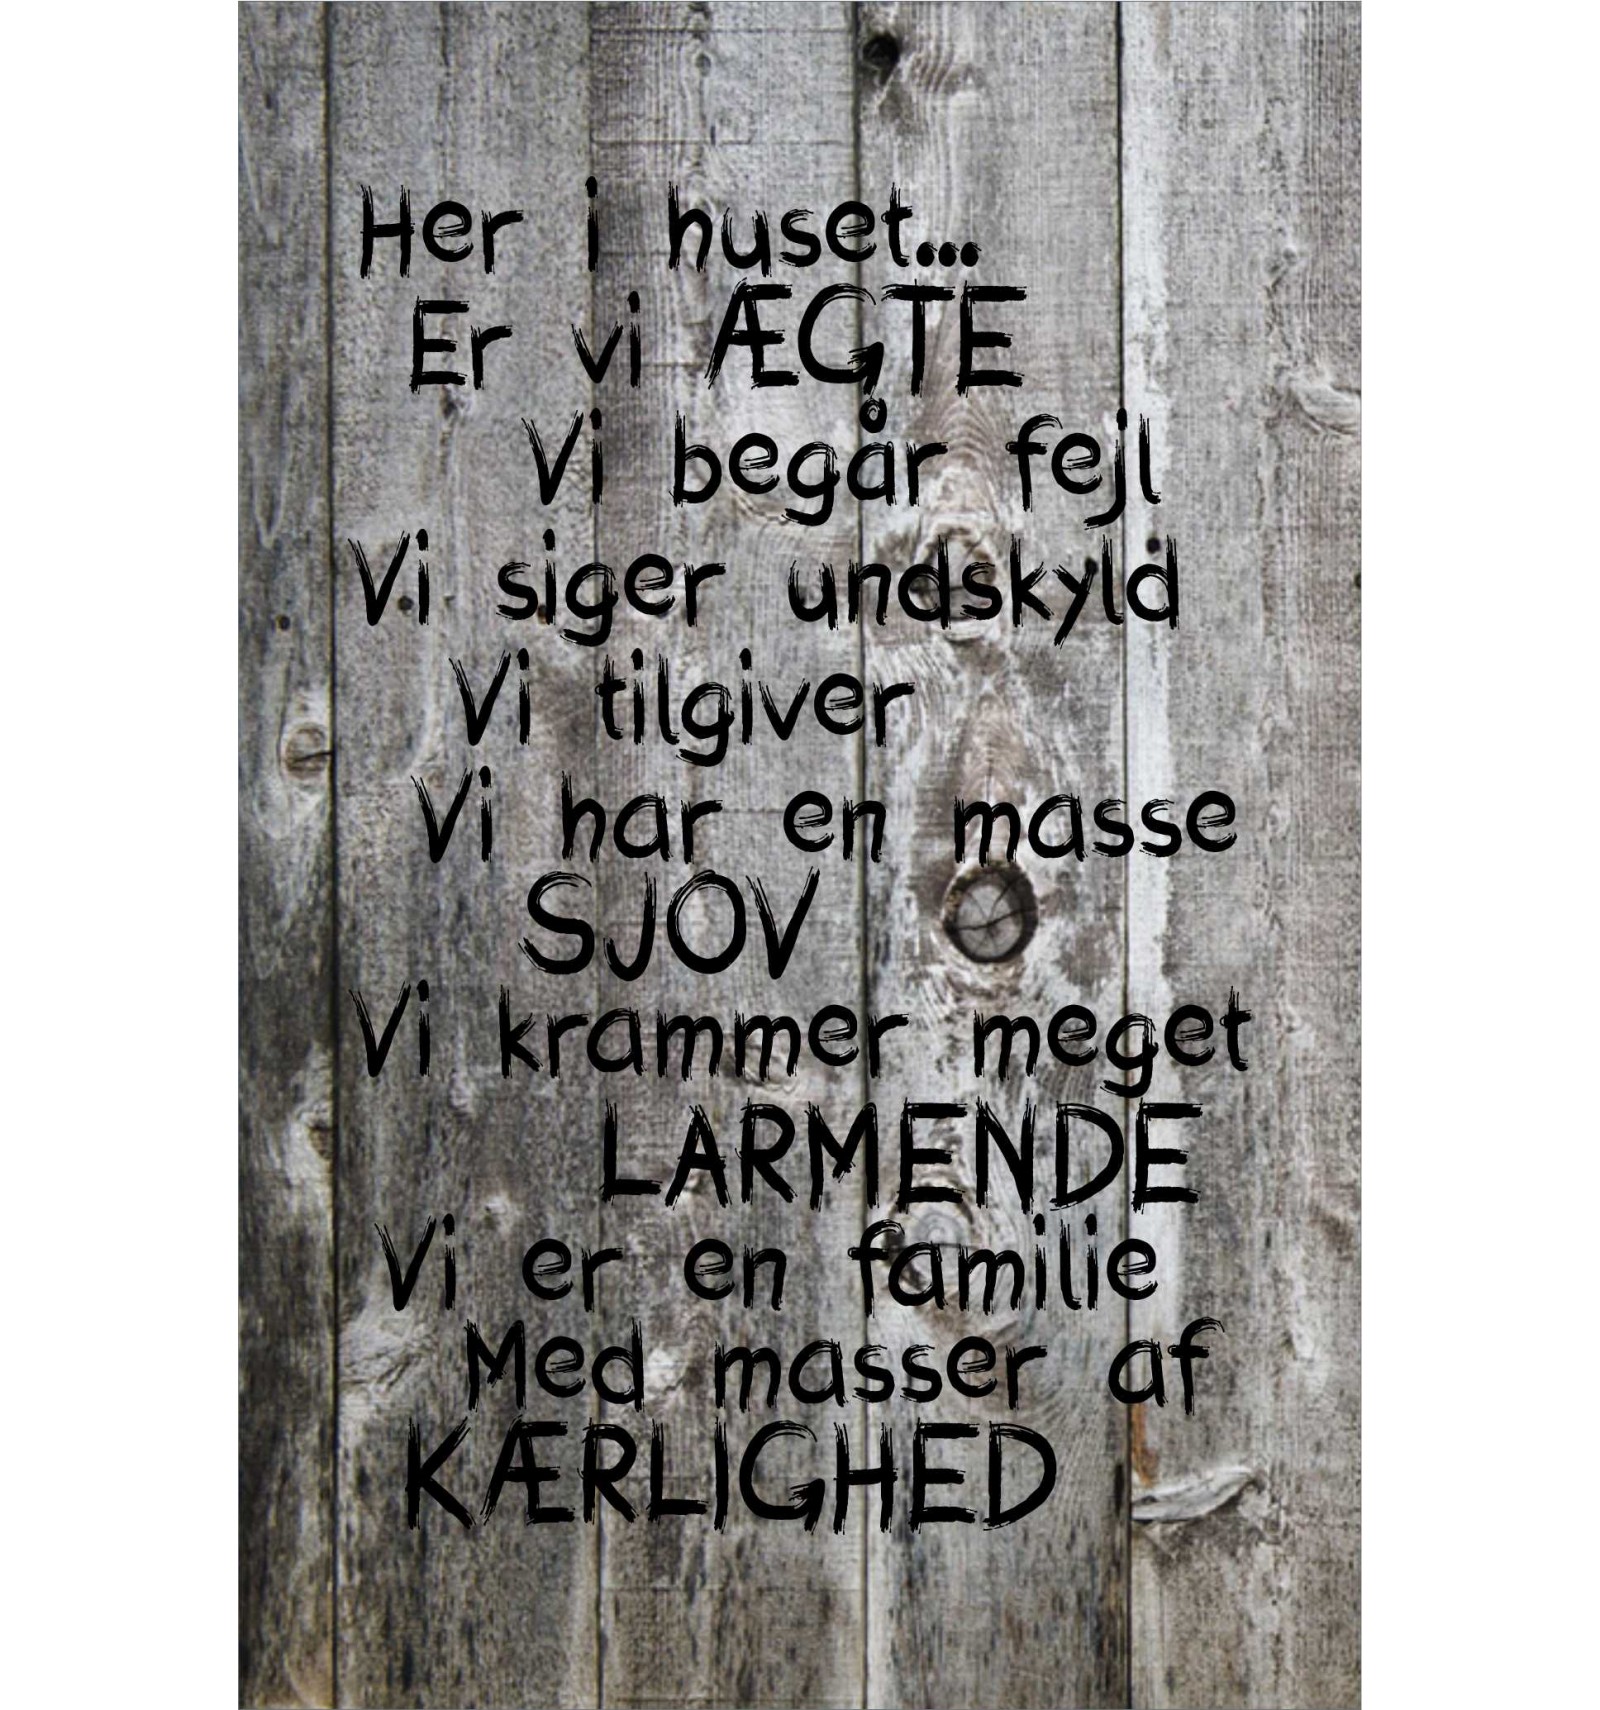 Her i huset...
Er vi ÆGTE
Vi begår fejl
Vi siger undskyld
Vi tilgiver
Vi har en masse
SJOV
Vi krammer meget
LARMENDE
Vi er en familie
Med masser af
KÆRLIGHED